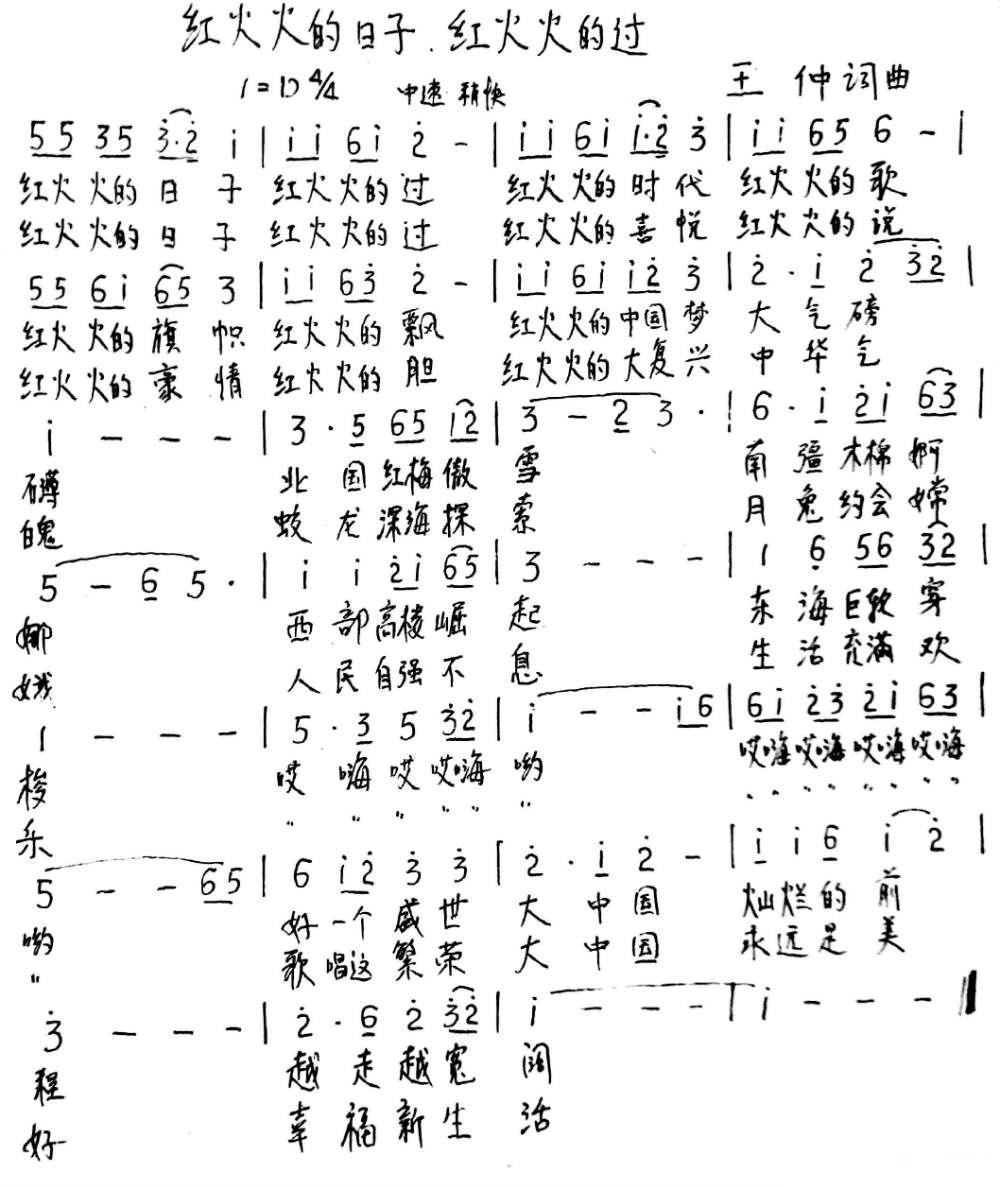 红火火的日子.红火火的过
1=D 4/4 中速 稍快 王仲词曲
5 5 3 5 3·2 i | i i 6 i 2 - | i i 6 i i·2 3 | i i 6 5 6 - |
红火火的日子 红火火的过 红火火的时代 红火火的歌
红火火的日子 红火火的过 红火火的喜悦 红火火的说
5 5 6 i 6 5 3 | i i 6 3 2 - | i i 6 i i 2 3 | 2 · i 2 3 2 |
红火火的旗帜 红火火的飘 红火火的中国梦 大气磅
红火火的豪情 红火火的胆 红火火的大复兴 中华气
i - - - | 3 · 5 6 5 i 2 | 3 - 2 3 · | 6 · i 2 i 6 3 |
礴 北国红梅傲雪 南疆木棉婀
魄 蛟龙深海探索 月兔约会嫦
5 - 6 5 · | i i 2 i 6 5 | 3 - - - | 1 6 5 6 3 2 |
娜 西部高楼崛起 东海巨轮穿
娥 人民自强不息 生活充满欢
1 - - - | 5 · 3 5 3 2 | i - - i 6 | 6 i 2 3 2 i 6 3 |
梭 哎嗨哎哎嗨哟 哎嗨哎嗨哎嗨哎嗨
乐 " " " " " " " " " " " " " "
5 - - 6 5 | 6 i 2 3 3 | 2 · i 2 - | i i 6 i 2 |
哟 好一个盛世 大中国 灿烂的前
" 歌唱这繁荣 大中国 永远是美
3 - - - | 2 · 6 2 3 2 | i - - - | i - - - ‖
程 越走越宽阔
好 幸福新生活